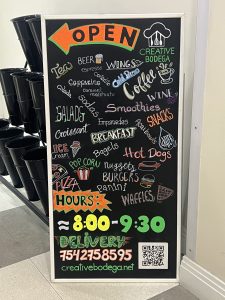 OPEN
CREATIVE
BODEGA
BEER
WINGS
Teas
espresso
Cold Brew
Coffee
Cappuccino
Caramel
macchiato
sodas
WINE
Smoothies
SALADS
SNACKS
Croissant
Empanadas
BREAKFAST
Bagels
ICE
Hot Dogs
POP CORN
nuggets
PIZZA
BURGERS
panini
WAFFLES
HOURS:
≈8:00-9:30
DELIVERY
7542758595
creativebodega.net